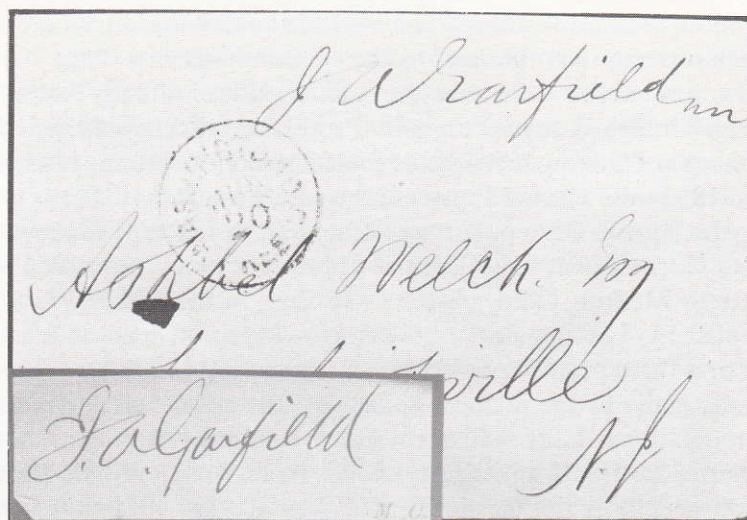 J A Garfield
WASHINGTON
Ashbel Welch. Esq
ville
N.J
J. A. Garfield
M. C.